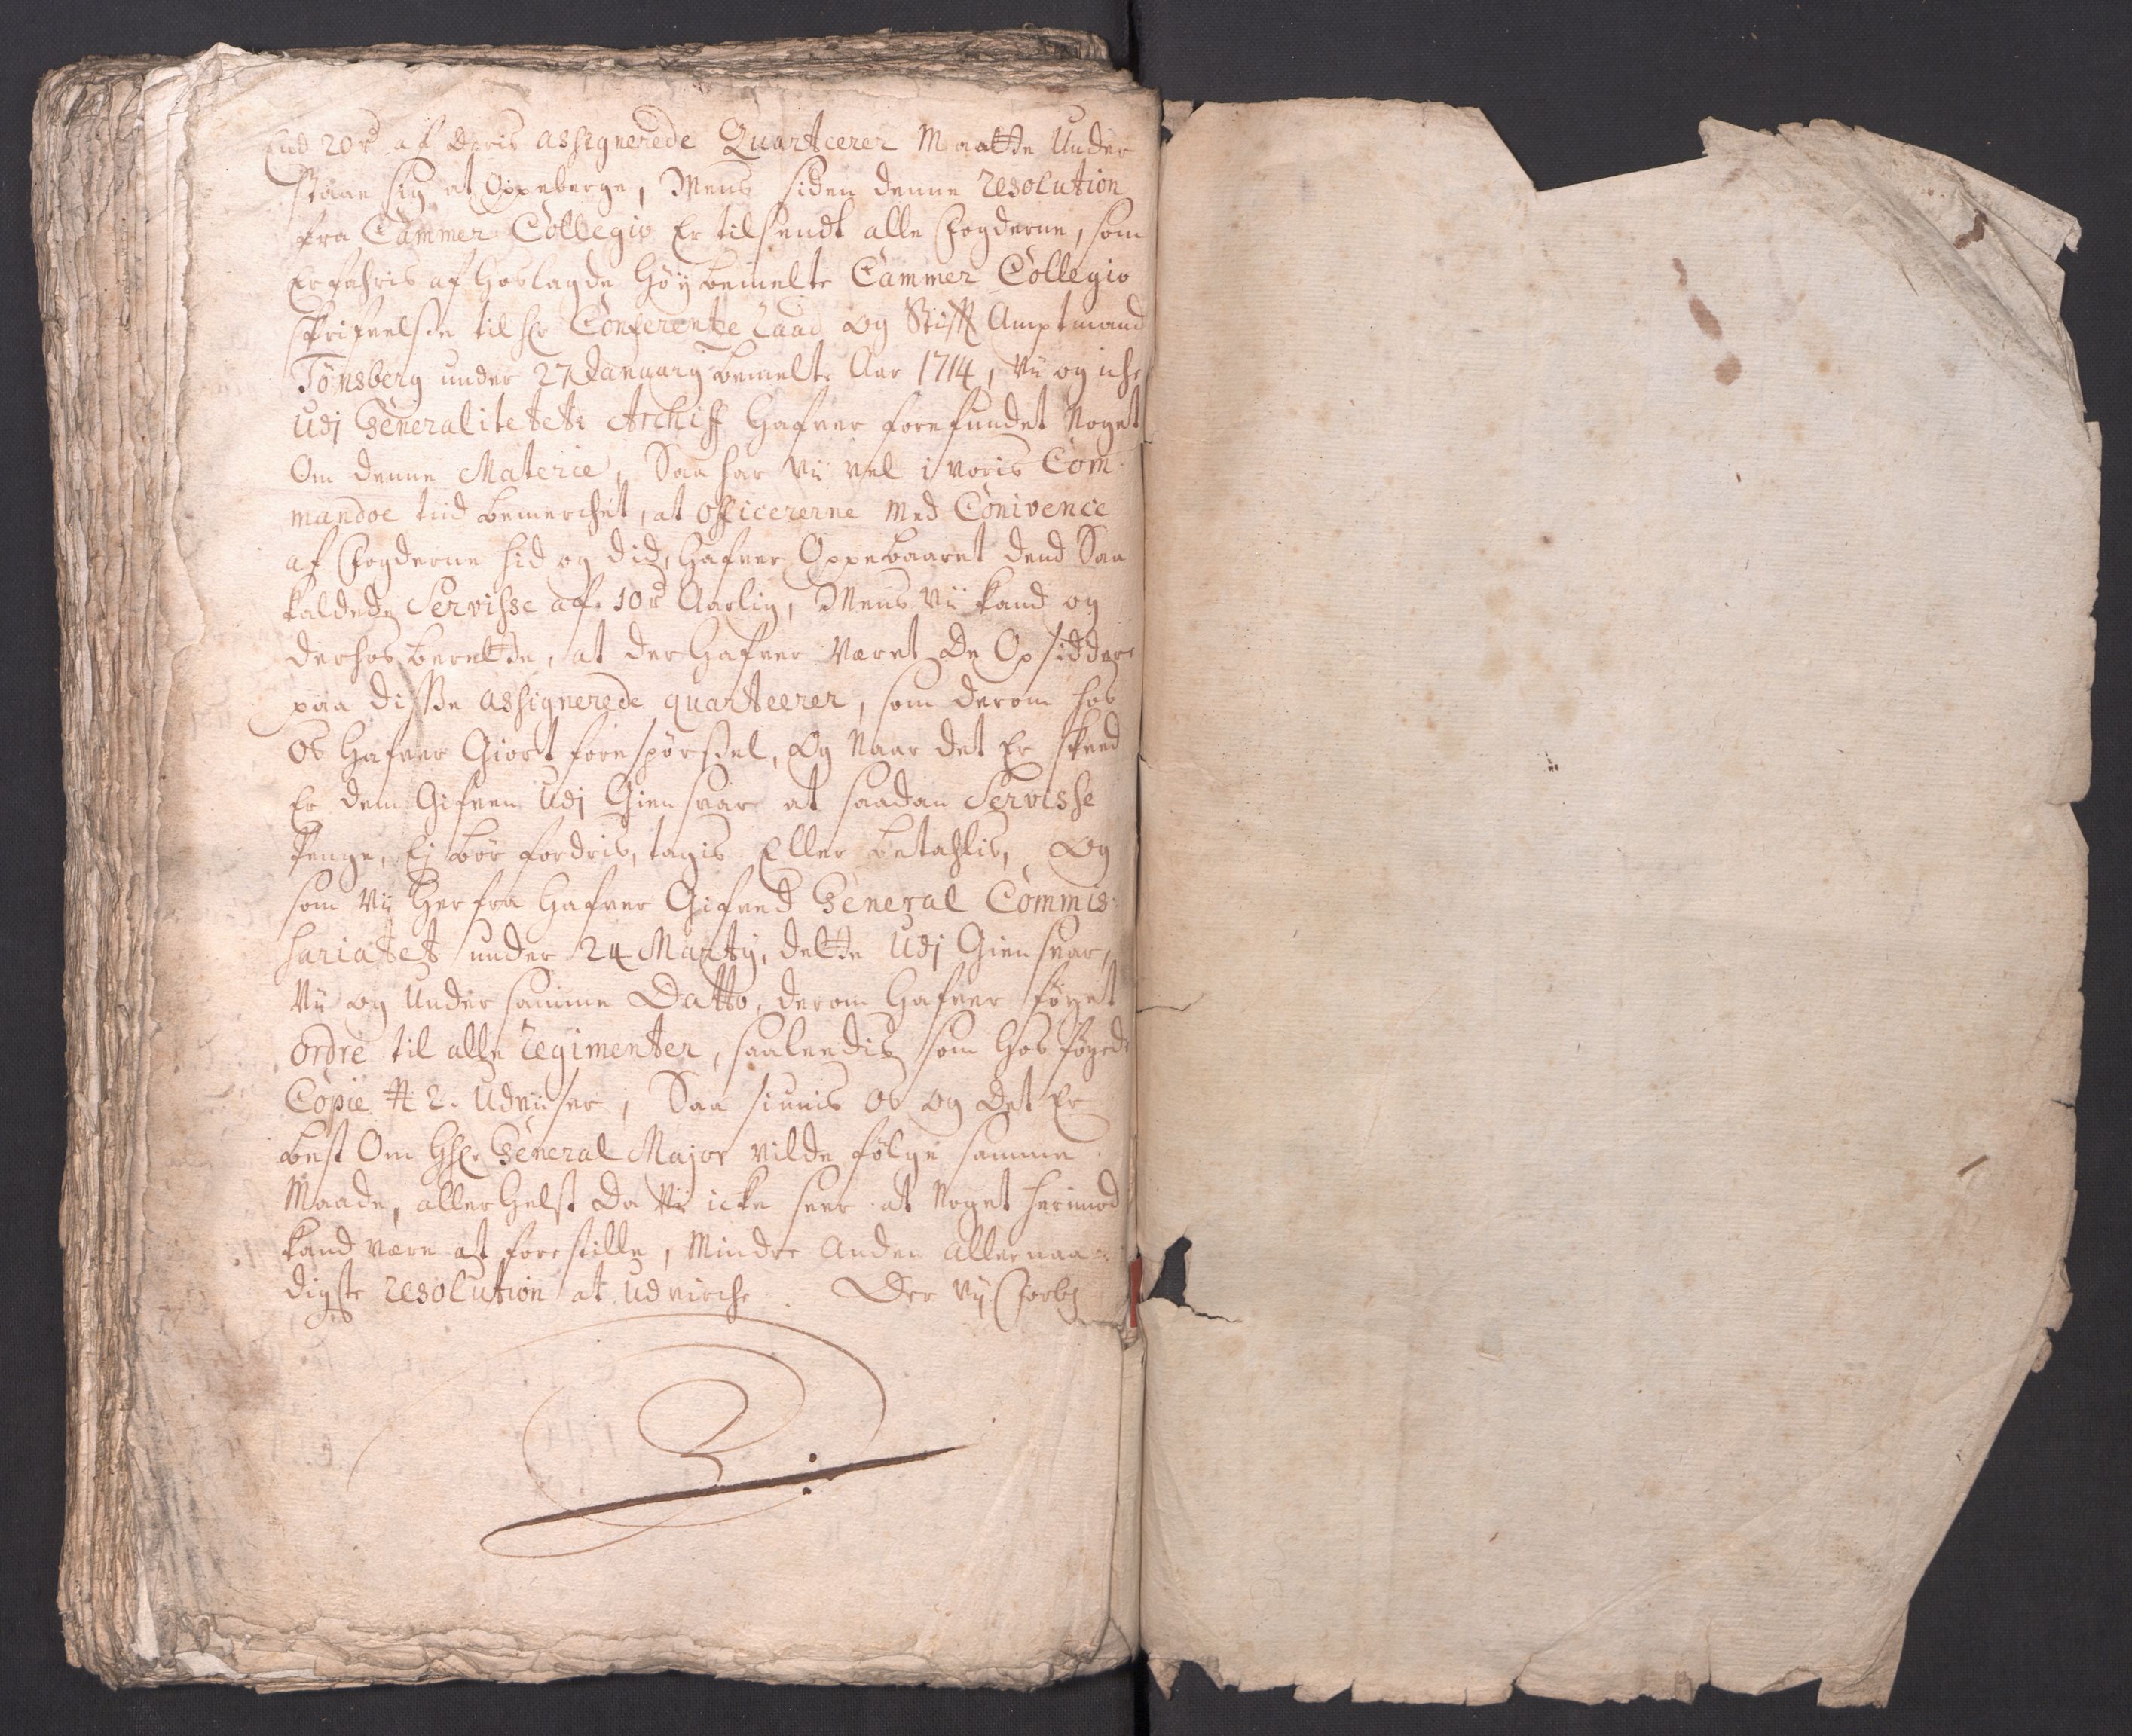 End 20 rd af deris assignerede Quarteerer Maatte Under
staae sig at Oppeberge, Mens siden denne resolution
fra Cammer Collegio Er tilsendt alle Fogderne, som
Erfahris af hoslagde Höybemelte Cammer Collegio
skrifvelse til hr Conferentze Raad og Stifft Amptmand
Tönsberg under 27 January bemelte Aar 1714, Vii og iche
Udj Generalitetets Archiff Hafver forefundet Noget
Om denne Materie, Saa har Vii vel i voris Com-
mandoe tiid bemerchet, at officererne Med Conivence
af Fogderne hid og did, Hafver Oppebaaret dend Saa
kaldede Servisse af 10 rd Aarlig, Mens Vii kand og
derhos berette, at der Hafver Været De Opsiddere
paa disse assignerede quarteerer, som derom hos
Os Hafver Giort forespörsel, Og Naar det Er skeed
Er dem Gifven Udj Giensvar at saadan Servisse
Penge, Ej bör fordris, tagis Eller betahlis, Og
som Vii Herfra Hafver Gifved General Commis-
sariatet under 24 Marty, dette Udj Giensvar,
Vii og Under samme Datto, derom Hafver föyet
ordre til alle regimenter, saaleedis som Hosföyede
Copie # 2. Udviiser, Saa siunis Os og det Er
best Om Hr General Major vilde fölge samme
Maade, aller Helst Da Vii icke seer at Noget herimod
kand være at forestille, Mindre Anden allernaa-
digste resolution at udvirche. Der Vij Forbl